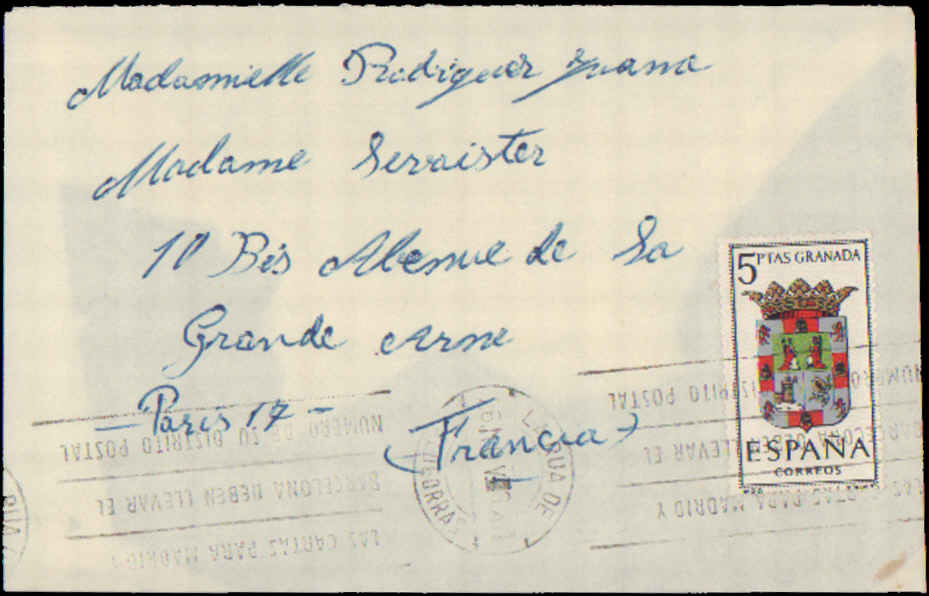 Madamielle Rodriguez Juana
Madame Servister
10 Bis Abenue de La
Grande Arme
-Paris 17-
(Francia)
5 PTAS GRANADA
ESPAÑA
CORREOS
LAS CARTAS PARA MADRID Y
BARCELONA DEBEN LLEVAR EL
NUMERO DE SU DISTRITO POSTAL
LAS CARTAS PARA MADRID Y
BARCELONA DEBEN LLEVAR EL
NUMERO DISTRITO POSTAL